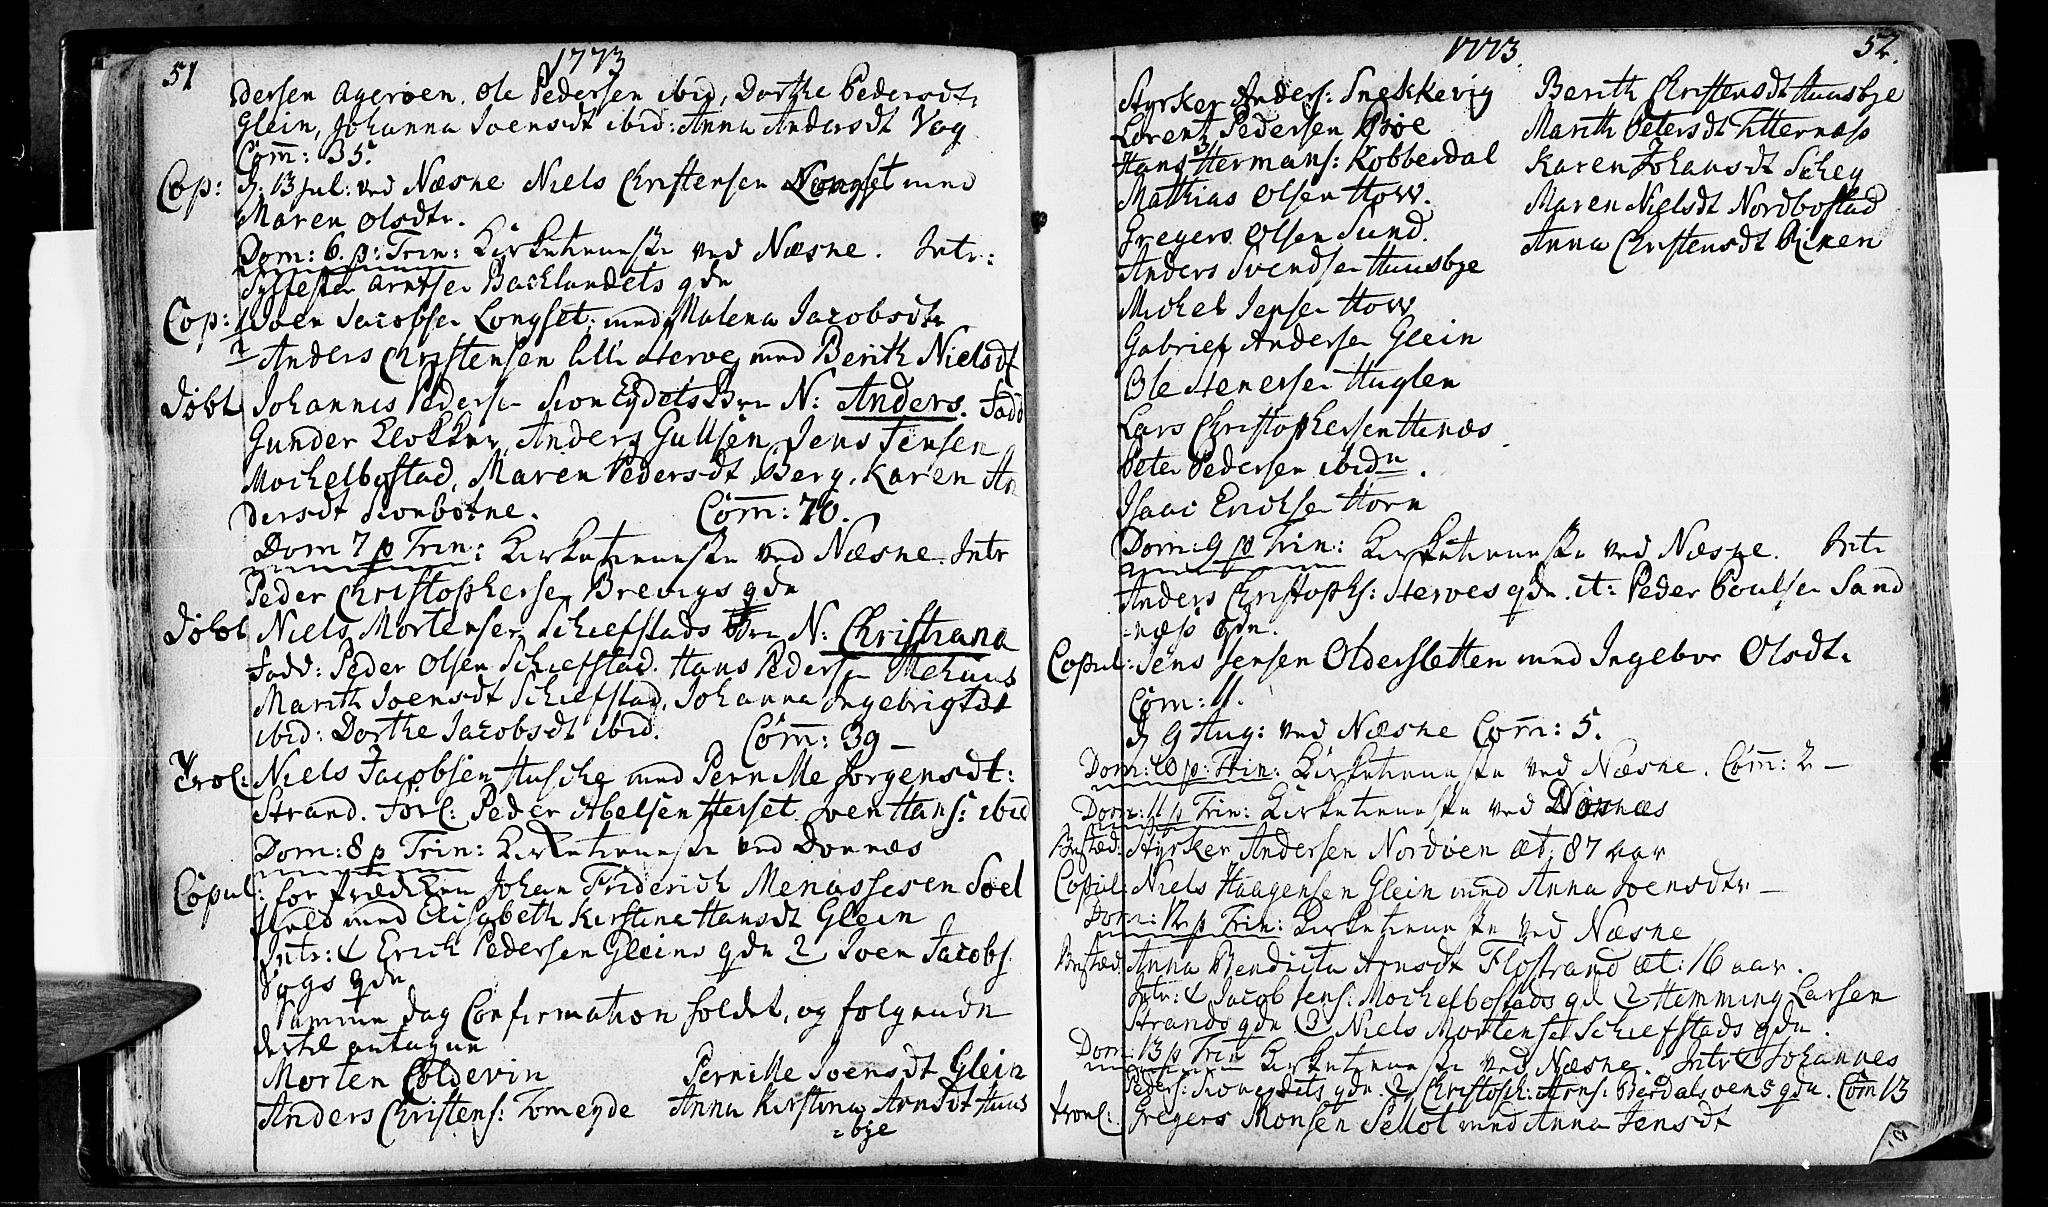 51
1773
dersen Agerøen. Ole Pedersen ibid, Dorthe Pedersdtr
Glein, Johanna Joensdt ibid: Anna Andersdt Vag
Com̄: 35.
Cop: d. 13 Jul: ved Næsne Niels Christensen Longset med
Maren Olsdtr.
Dom: 6. p: Trin: Kirketieneste ved Næsne. Intr:
Arntsen Backlandets qde
Cop: 1 Joen Jacobsen Longset med Malena Jacobsdtr
2 Anders Christensen lille Herve med Berith Nielsdt
Døbt Johannes Pedersen Sioneydets Brn N: Anders. Fadd
Gunder Klokker, Anders Gullsen, Jens Jensen
Mochelbostad, Maren Pedersdt Berg, Karen An
dersdt Sionbotne. Com̄: 76.
Dom 7 p Trin: Kirketieneste ved Næsne. Intr
Peder Christophersen Brevigs qde
Døbt Niels Mortensen Schiefstads Brn N: Christiana
Fadd: Peder Olsen Schiefstad. Hans Pedersen Mehuus
Marith Joensdt Schiefstad, Johanna Ingebrigtdt
ibid: Dorthe Jacobsdt ibid. Com̄: 39 —
Trol: Niels Jacobsen Husche med Pernille Jorgensdt:
Strand. Forl: Peder Abelsen Herset. Joen Hans: ibid
Dom: 8 p Trin: Kirketieneste ved Dønnæs
Copul: for Prædiken Johan Friderich Menassesen Soel
Hvild med Elisabeth Kirstina Hansdt Glein
Intr: 1 Erich Pedersen Gleins qde 2 Joen Jacobs.
Vags qde
Samme dag Confirmation holdet, og folgende
dertil antagne
Morten Coldevin Pernille Joensdt Glein
Anders Christens: Tomeyde Anna Kirstina Arnsdt Huus
=bye
1773.
52.
Styrker Anders: Snekkevig Berith Christensdt Huusbye
Lorentz Pedersen Bøe Marith Petersdt Titternæss
Hans Hermans: Kobberdal Karen Johansdt Schey
Mathias Olsen How. Maren Nielsdt Nordbostad
Gregers Olsen Sund. Anna Christensdt Riken
Anders Svendsen Huusbye
Michel Jensen How
Gabriel Andersen Glein
Ole Henersen Huglen
Lars Christophersen Henæs
Peter Pedersen ibidn.
Isaac Erichsen Horn
Dom: 9 p Trin: Kirketieneste ved Næsne. Intr
Anders Christophs: Herves qde. it: Peder Poulsen Sand
=næss qde.
Copul: Jens Jensen Oldersletten med Ingebor Olsdt.
Com: 11.
d 9 Aug: ved Næsne Com̄: 5.
Dom: 10 p: Trin: Kirketieneste ved Næsne. Com̄: 2 —
Dom: 11 p Trin: Kirketieneste ved Dønnæs
Bestæd: Styrker Andersen Nordøen æt: 87 aar
Copul: Niels Haagensen Glein med Anna Joensdtr —
Dom: 12 p Trin: Kirketieneste ved Næsne
Bestæd: Anna Bendicta Arnsdt Flostrand æt: 16 aar.
Intr: 1 Jacob Jens: Mochelbostads qd 2 Hemming Larsen
Strands qde 3 Niels Mortensen Schiefstads qde.
Dom: 13 p Trin Kirketieneste ved Næsne. Intr 1 Johannes
Peders: Sioneydets qde. 2 Christoph: Arns: Berdalsøens qde. Com̄ 13
Trol: Gregers Monsen Sellot med Anna Jensdt